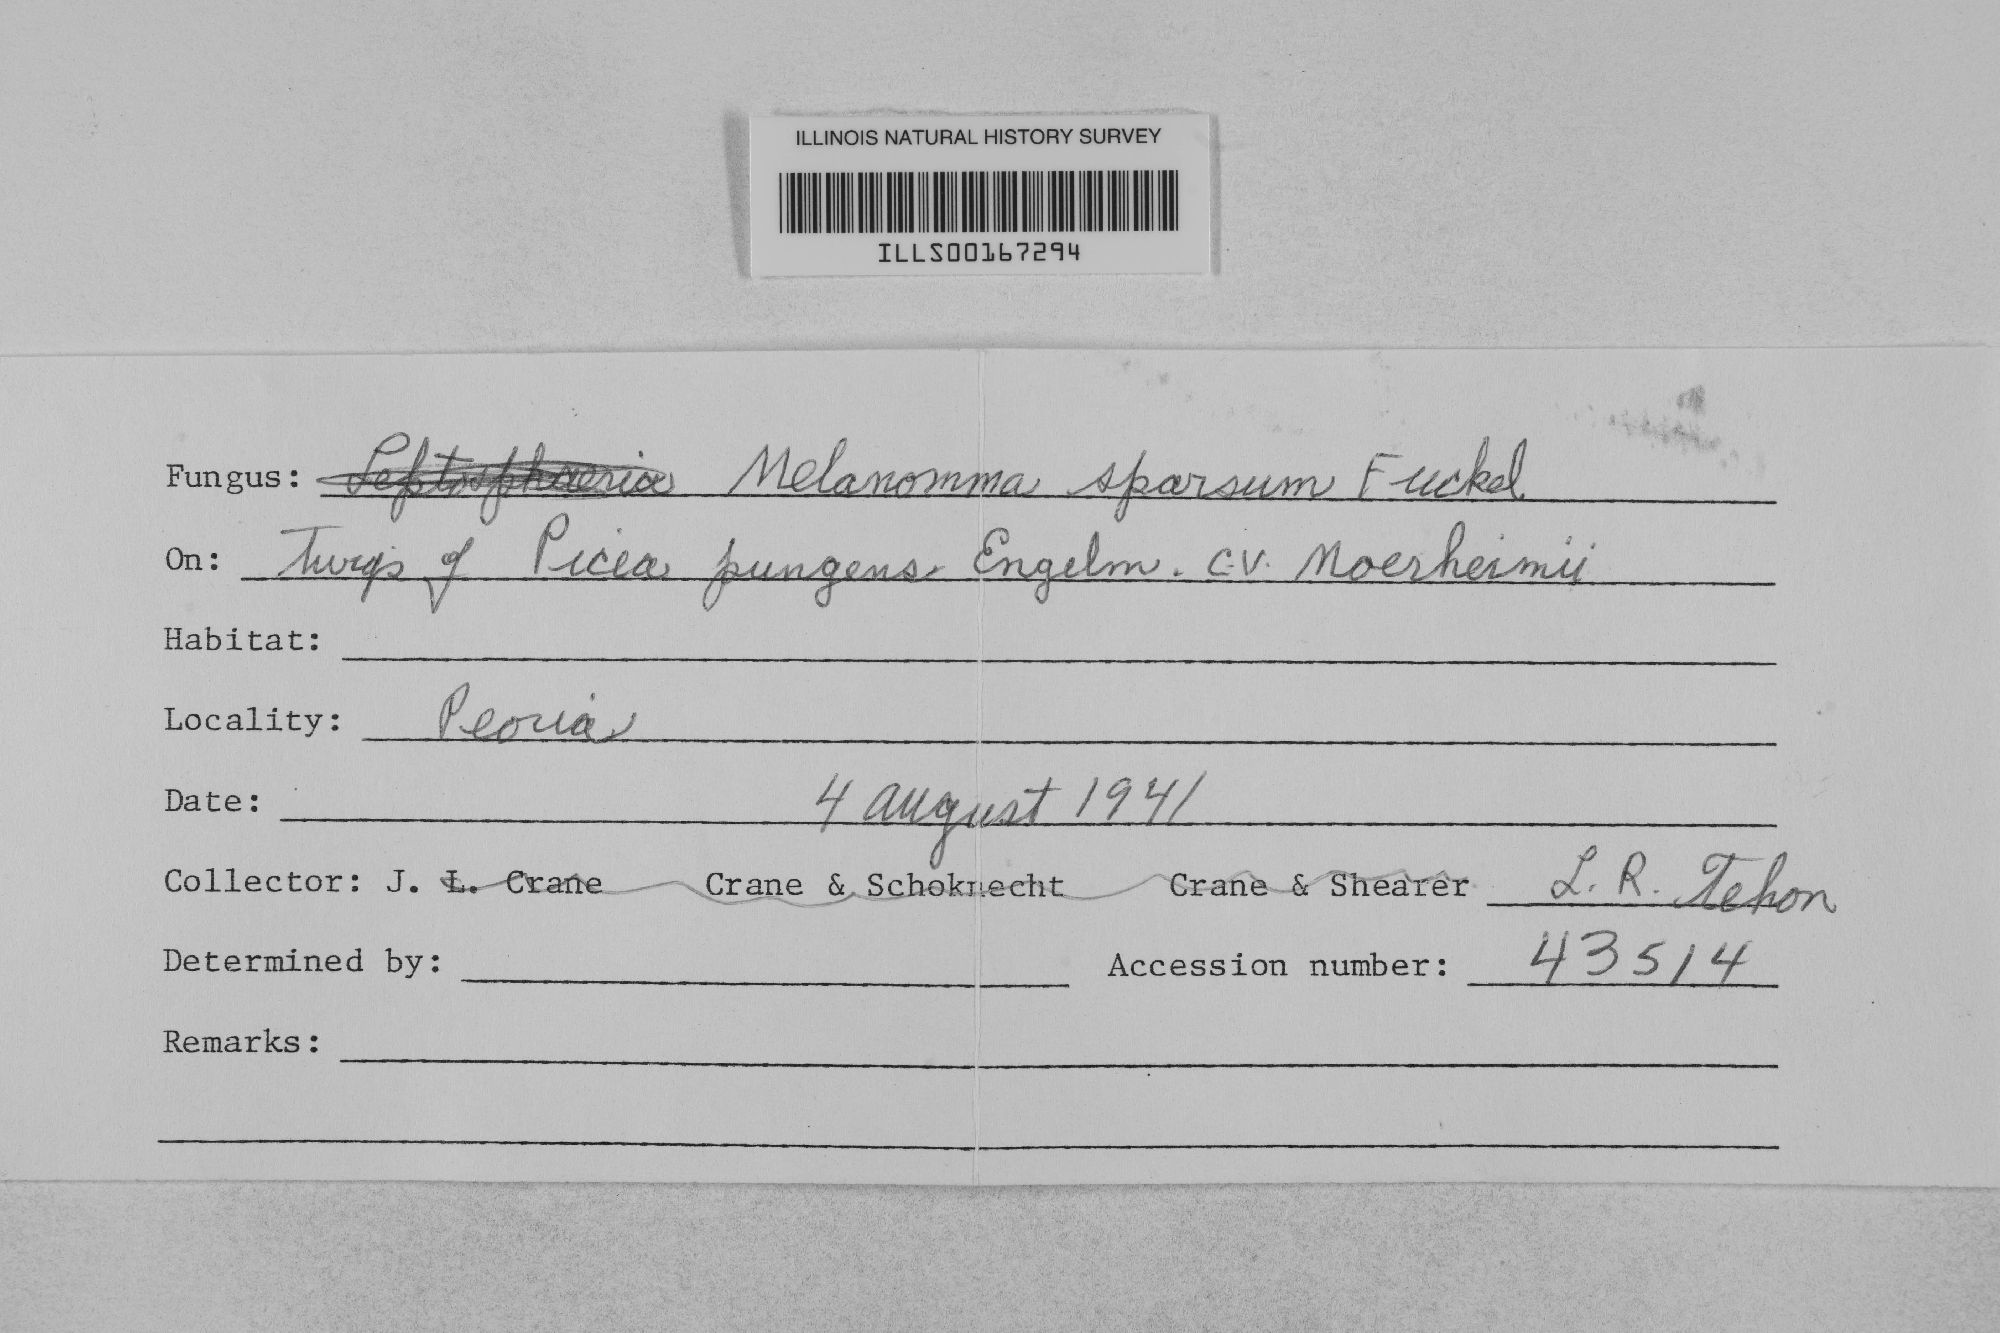 ILLINOIS NATURAL HISTORY SURVEY
ILLS00167294
Fungus: Leptosphaeria Melanomma sparsum Fuckel
On: Twigs of Picea pungens Engelm. c.v. Moerheimii
Habitat:
Locality: Peoria
Date: 4 August 1941
Collector: J. L. Crane Crane & Schoknecht Crane & Shearer L. R. Tehon
Determined by: Accession number: 43514
Remarks: